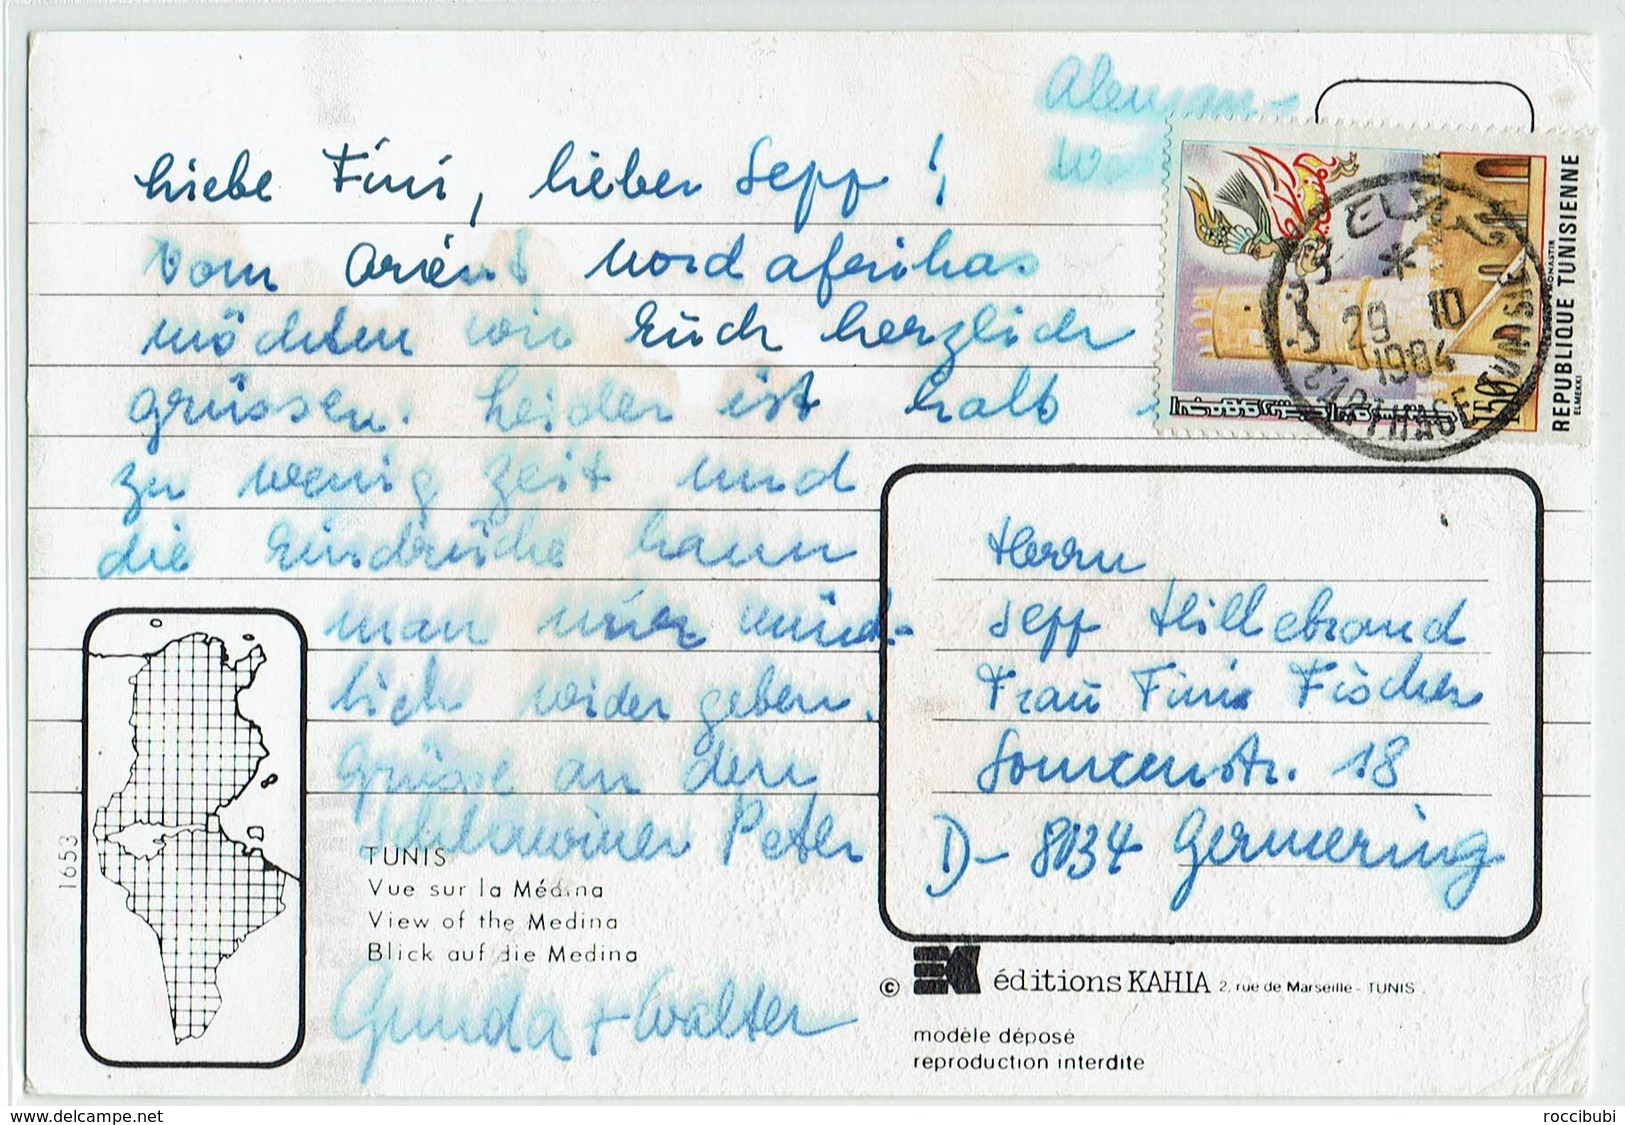 Aleman-
Liebe Fini, lieber Sepp!
Vom Orient Nordafrikas
möchten wir Euch herzlich
grüssen. Leider ist halt
zu wenig Zeit und
die Eindrücke kann
man nur münd-
lich wider geben.
Grüsse an den
Peter
Gunda + Walter
TUNIS
Vue sur la Médina
View of the Medina
Blick auf die Medina
1653
REPUBLIQUE TUNISIENNE
MONASTIR
ELMEKKI
150
29 10
1984
CARTHAGE TUNISIE
Herrn
Sepp Hillebrand
Frau Fini Fischer
Sonnenstr. 18
D-8034 Germering
© EK éditions KAHIA 2, rue de Marseille - TUNIS.
modèle déposé
reproduction interdite
www.delcampe.net
roccibubi